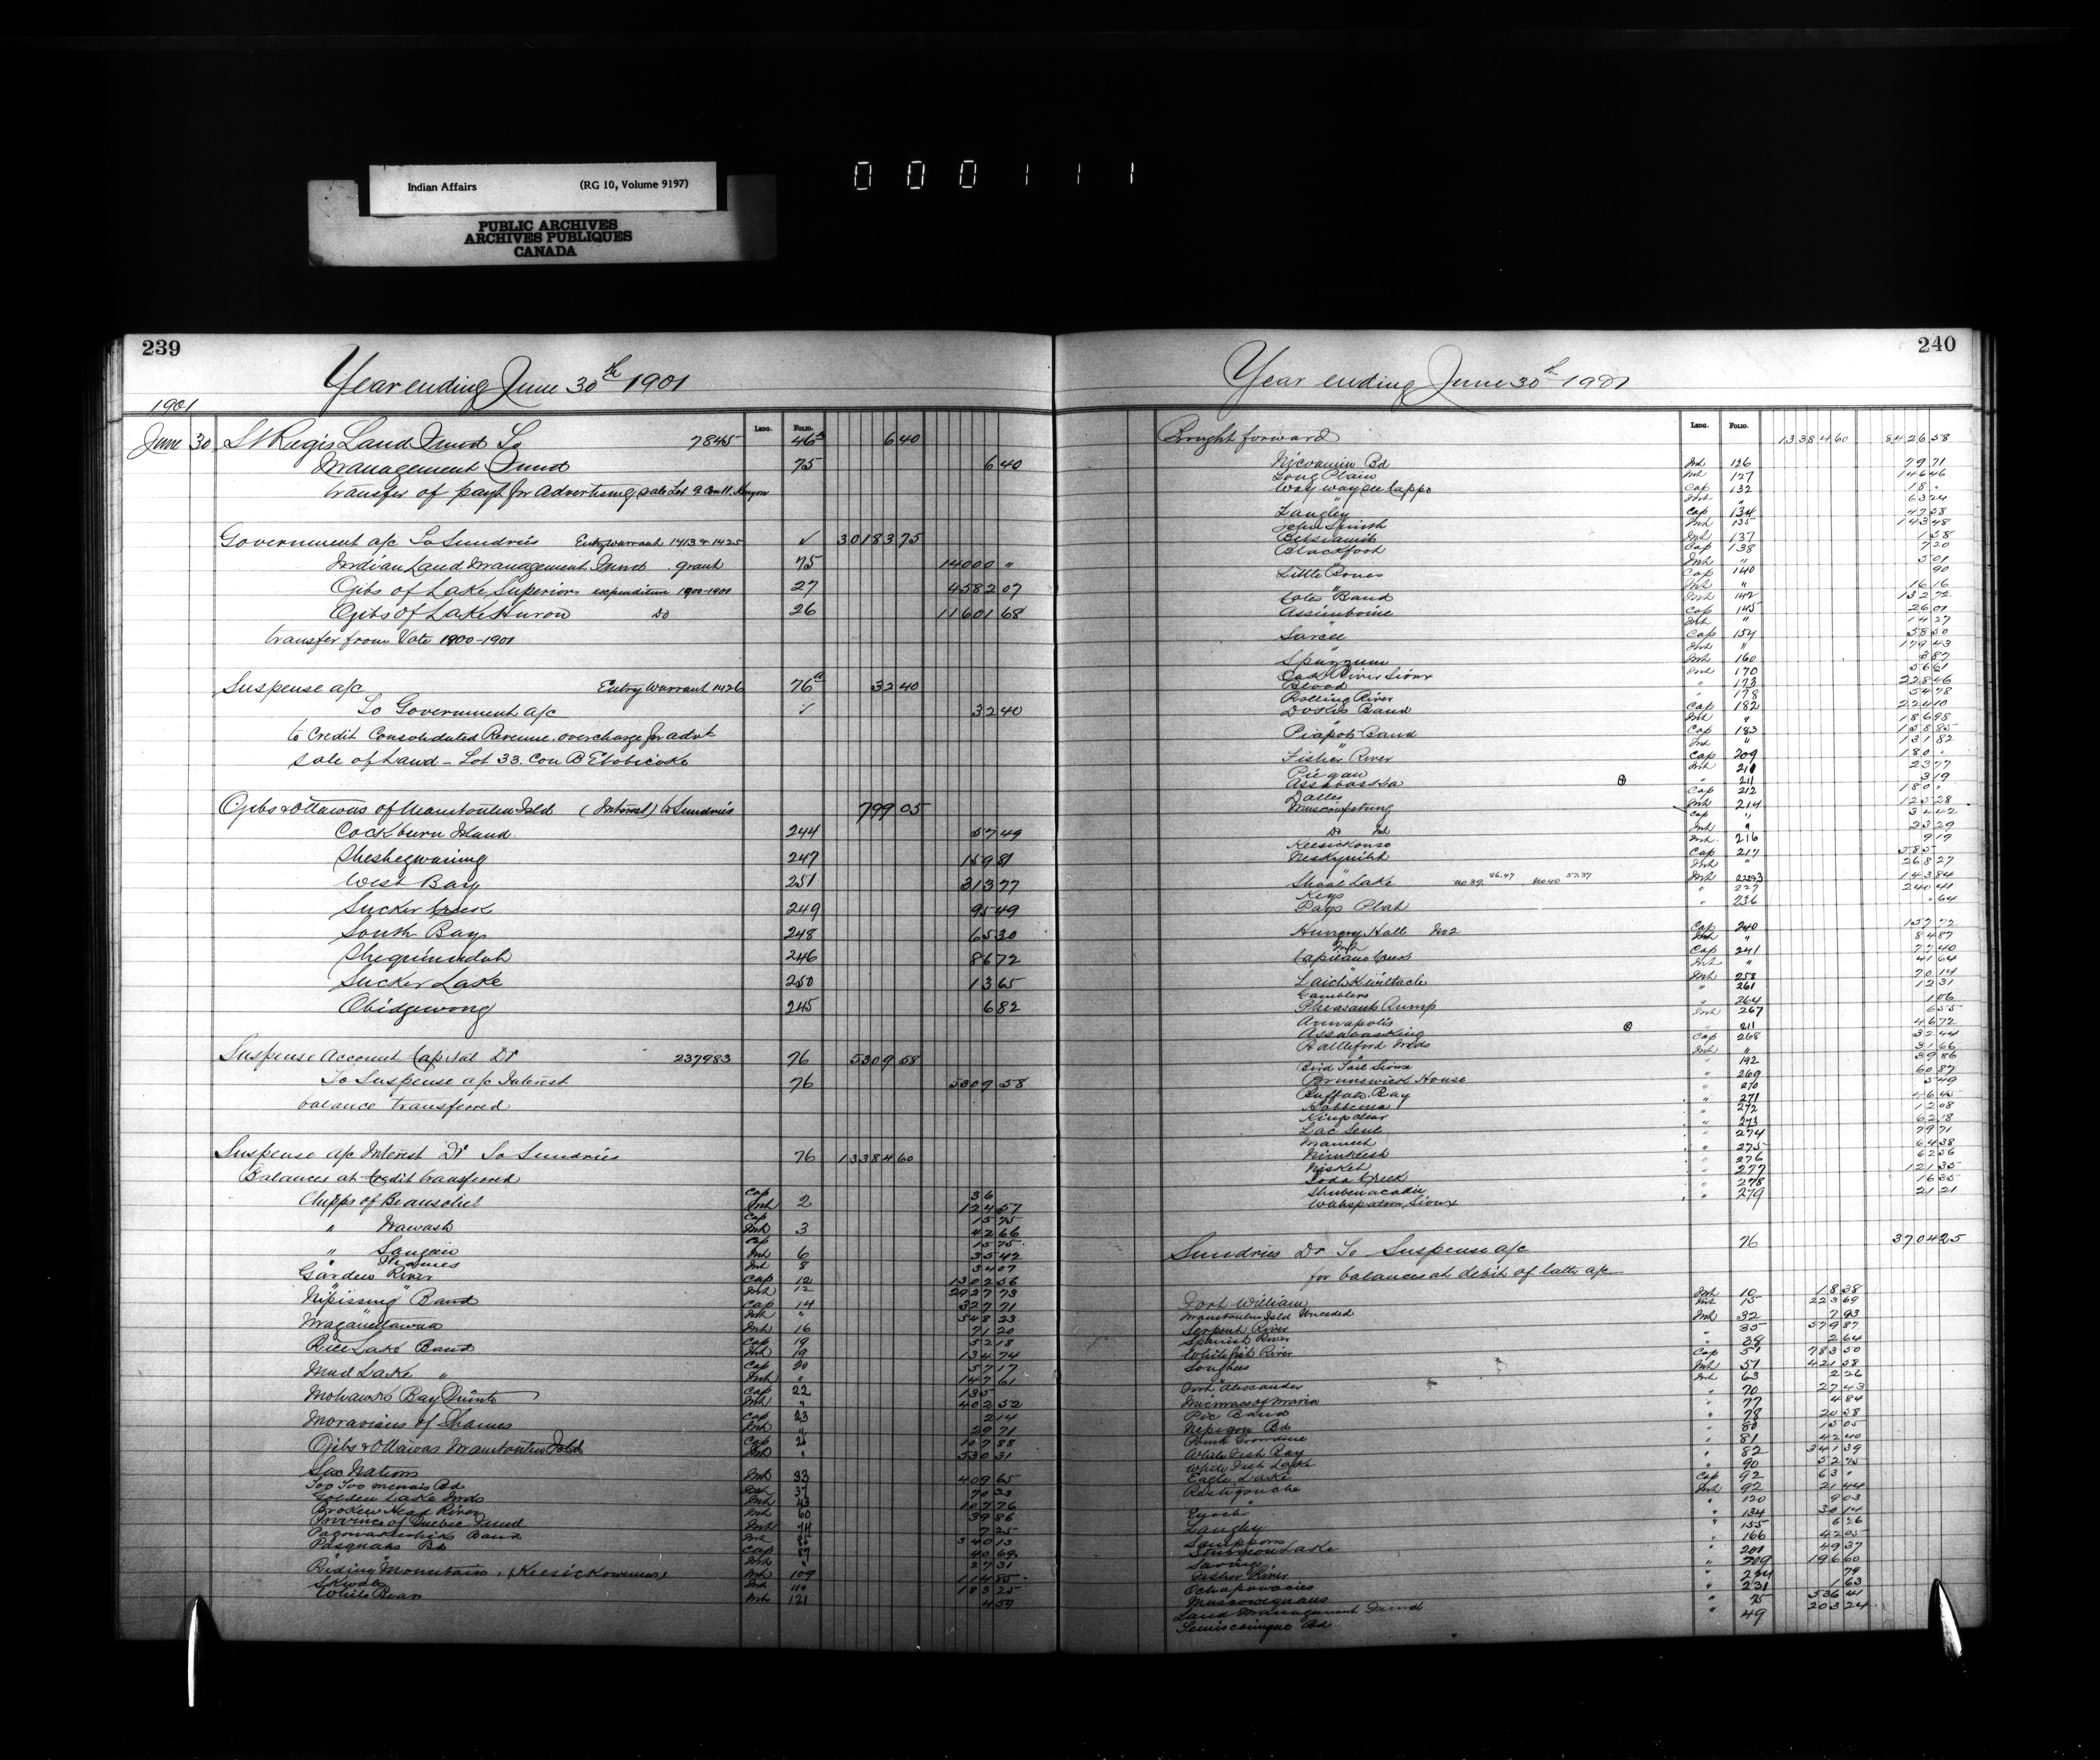 Indian Affairs (RG 10, Volume 9197)
PUBLIC ARCHIVES
ARCHIVES PUBLIQUES
CANADA
000111
239
Year ending June 30th 1901
1901
LEDG. FOLIO.
June 30 St Regis Land Fund To 7845 46a 6 40
Management Fund 75 6 40
transfer of payt for advertising sale Lot 9 Con 11. Kenyon
Government a/c To Sundries Entry Warrant 1413 & 1425 ✓ 30183 75
Indian Land Management Fund . grant 75 14000 "
Ojibs of Lake Superiors expenditure 1900-1901 27 4582 07
Ojibs of Lake Huron Do 26 11601 68
transfer from Vote 1900-1901
Suspense a/c Entry Warrant 1426 76a 32 40
To Government a/c ✓ 32 40
to Credit Consolidated Revenue. overcharge for advt
sale of Land - Lot 33. Con B Etobicoke
Ojibs & Ottawas of Manitoulin Isld (Interest) to Sundries 799 05
Cockburn Island 244 57 49
Sheshegwaning 247 159 81
West Bay 251 313 77
Sucker Creek 249 95 49
South Bay 248 65 30
Sheguiandah 246 86 72
Sucker Lake 250 13 65
Obidgewong 245 6 82
Suspense Account Capital Dr 237983 76 5309 58
To Suspense a/c Interest 76 5309 58
balance transferred
Suspense a/c Interest Dr To Sundries 76 13384 60
Balances at Credit transferred
Chipps of Beausoliel Cap 2 36
Int 124 57
" Nawash Cap 15 75
Int 3 42 66
" Saugeen Cap 15 75
Int 6 35 42
" Thames Int 8 34 07
Garden River Cap 12 1302 56
" " Int 12 2927 73
Nipissing Band Cap 14 327 71
" Int " 548 23
Maganettawan Int 16 71 20
Rice Lake Band Cap 19 52 18
Int 19 134 74
Mud Lake " Cap 20 57 17
Int " 147 61
Mohawks Bay Quinte Cap 22 135
Int " 402 52
Moravians of Thames Cap 23 2 14
Int " 29 71
Ojibs & Ottawas Manitoulin Isld Cap 26 107 88
Int " 530 31
Six Nations Int 33 409 65
Int 37 70 33
Golden Lake Inds Int 43 107 76
Broken Head River Int 60 39 86
Province of Quebec Fund Int 74 7 25
Band Int 340 13
Pasquahs Bd Cap 87 40 69
Int " 27 31
Riding Mountain. (Keesickowenew) Int 109 114 85
Int 110 183 25
White Bear Int 121 4 59
240
Year ending June 30th 1901
LEDG. FOLIO.
Brought forward 13384 60 8426 58
Nicoamin Bd Int 126 79 71
Long Plain Int 127 146 46
Way way see Cappo Cap 132 18 "
" Int " 63 24
Langley Cap 134 47 58
John Smith Int 135 143 48
Betsiamits Int 137 1 58
Blackfoot Cap 138 7 20
" Int " 5 01
Little Bones Cap 140 90
" Int " 16 16
Cotes Band Int 142 132 72
Assiniboine Cap 145 26 01
" Int " 14 27
Sarcee Cap 154 58 50
" Int " 179 43
Spuzzum Int 160 3 87
Oak River Sioux Int 170 56 61
Blood " 173 228 46
Rolling River " 178 54 78
Dokis Band Cap 182 224 10
" Int " 186 98
Piapots Band Cap 183 158 85
" Int " 131 82
Fisher River Cap 209 180 "
Piegan Int 211 23 77
Assabaska " 211 3 19
Dalles Cap 212 180 "
Muscowpetung Int 214 125 28
Cap " 34 42
Do Int Int " 23 29
Keesickouse Int 216 9 19
Neskynlith Cap 217 5 85
" Int " 268 27
Shoal Lake No 39. 86.47 No 40 57.37 Int 223 143 84
Keys " 227 240 41
Pays Plat " 236 64
Hungry Hall No 2 Cap 240 157 72
Int Int " 84 87
Capilano Creek Cap 241 77 40
" Int " 41 64
Laich Kwiltach Int 258 70 14
Gamblers " 261 12 31
Pheasant Rump " 264 1 06
Annapolis Int 267 6 55
Assabasking " 211 46 72
Battleford Inds Cap 268 32 44
" Int " 31 66
Bird Tail Sioux " 192 39 86
Brunswick House " 269 60 87
Buffalo Bay " 270 5 49
Hobbema " 271
Kingsclear " 272 12 08
Lac Seul " 273 62 18
Mameet " 274 79 71
Nimkeesh " 275 64 38
Nisket " 276 62 56
Soda Creek " 277 121 35
Shubenacadie " 278 16 35
Wahspaton Sioux " 279 21 21
Sundries Dr To Suspense a/c 76 3704 25
for balances at debit of latter a/c
Fort William Int 10 18 38
Manitoulin Isld Unceded Int 15 223 69
Serpent River Int 32 7 93
Spanish River " 35 579 87
Whitefish River " 38 2 64
Songhees Cap 51 783 50
" Int 51 421 58
Fort Alexander Int 63 2 26
Micmacs of Maria " 70 27 43
Pic Band " 77 4 84
Nepigon Bd " 78 20 58
" 80 15 05
White Fish Bay " 81 42 40
White Fish Lake " 82 341 39
Eagle Lake " 90 52 75
Restigouche Cap 92 63 "
" Int 92 21 44
Enoch " 120 9 03
Langley " 134 30 14
" 155 6 26
Sturgeon Lake " 166 42 05
" 201 49 37
Fisher River " 209 196 60
Ochapowacies " 79
Muscowequans " 231 1 63
Land Management Fund " 75 536 41
Temiscamingue Bd " 49 203 24